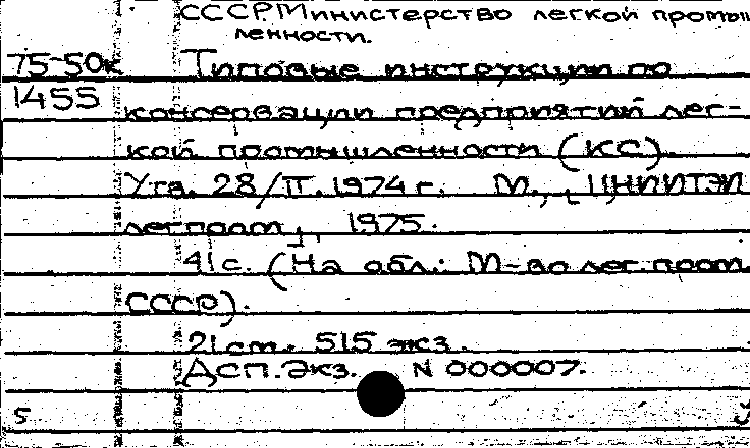 СССР. Министерство легкой промыш
ленности.
75-50к Типовые инструкции по
1455 консервации предприятий лег-
кой промышленности (КС).
Утв. 28/II. 1974 г. М., "ЦНИИТЭИ
легпром", 1975.
41 с. (На обл.: М-во лег. пром
СССР).
21 см. 515 экз.
ДСП. Экз. N 000007.
5